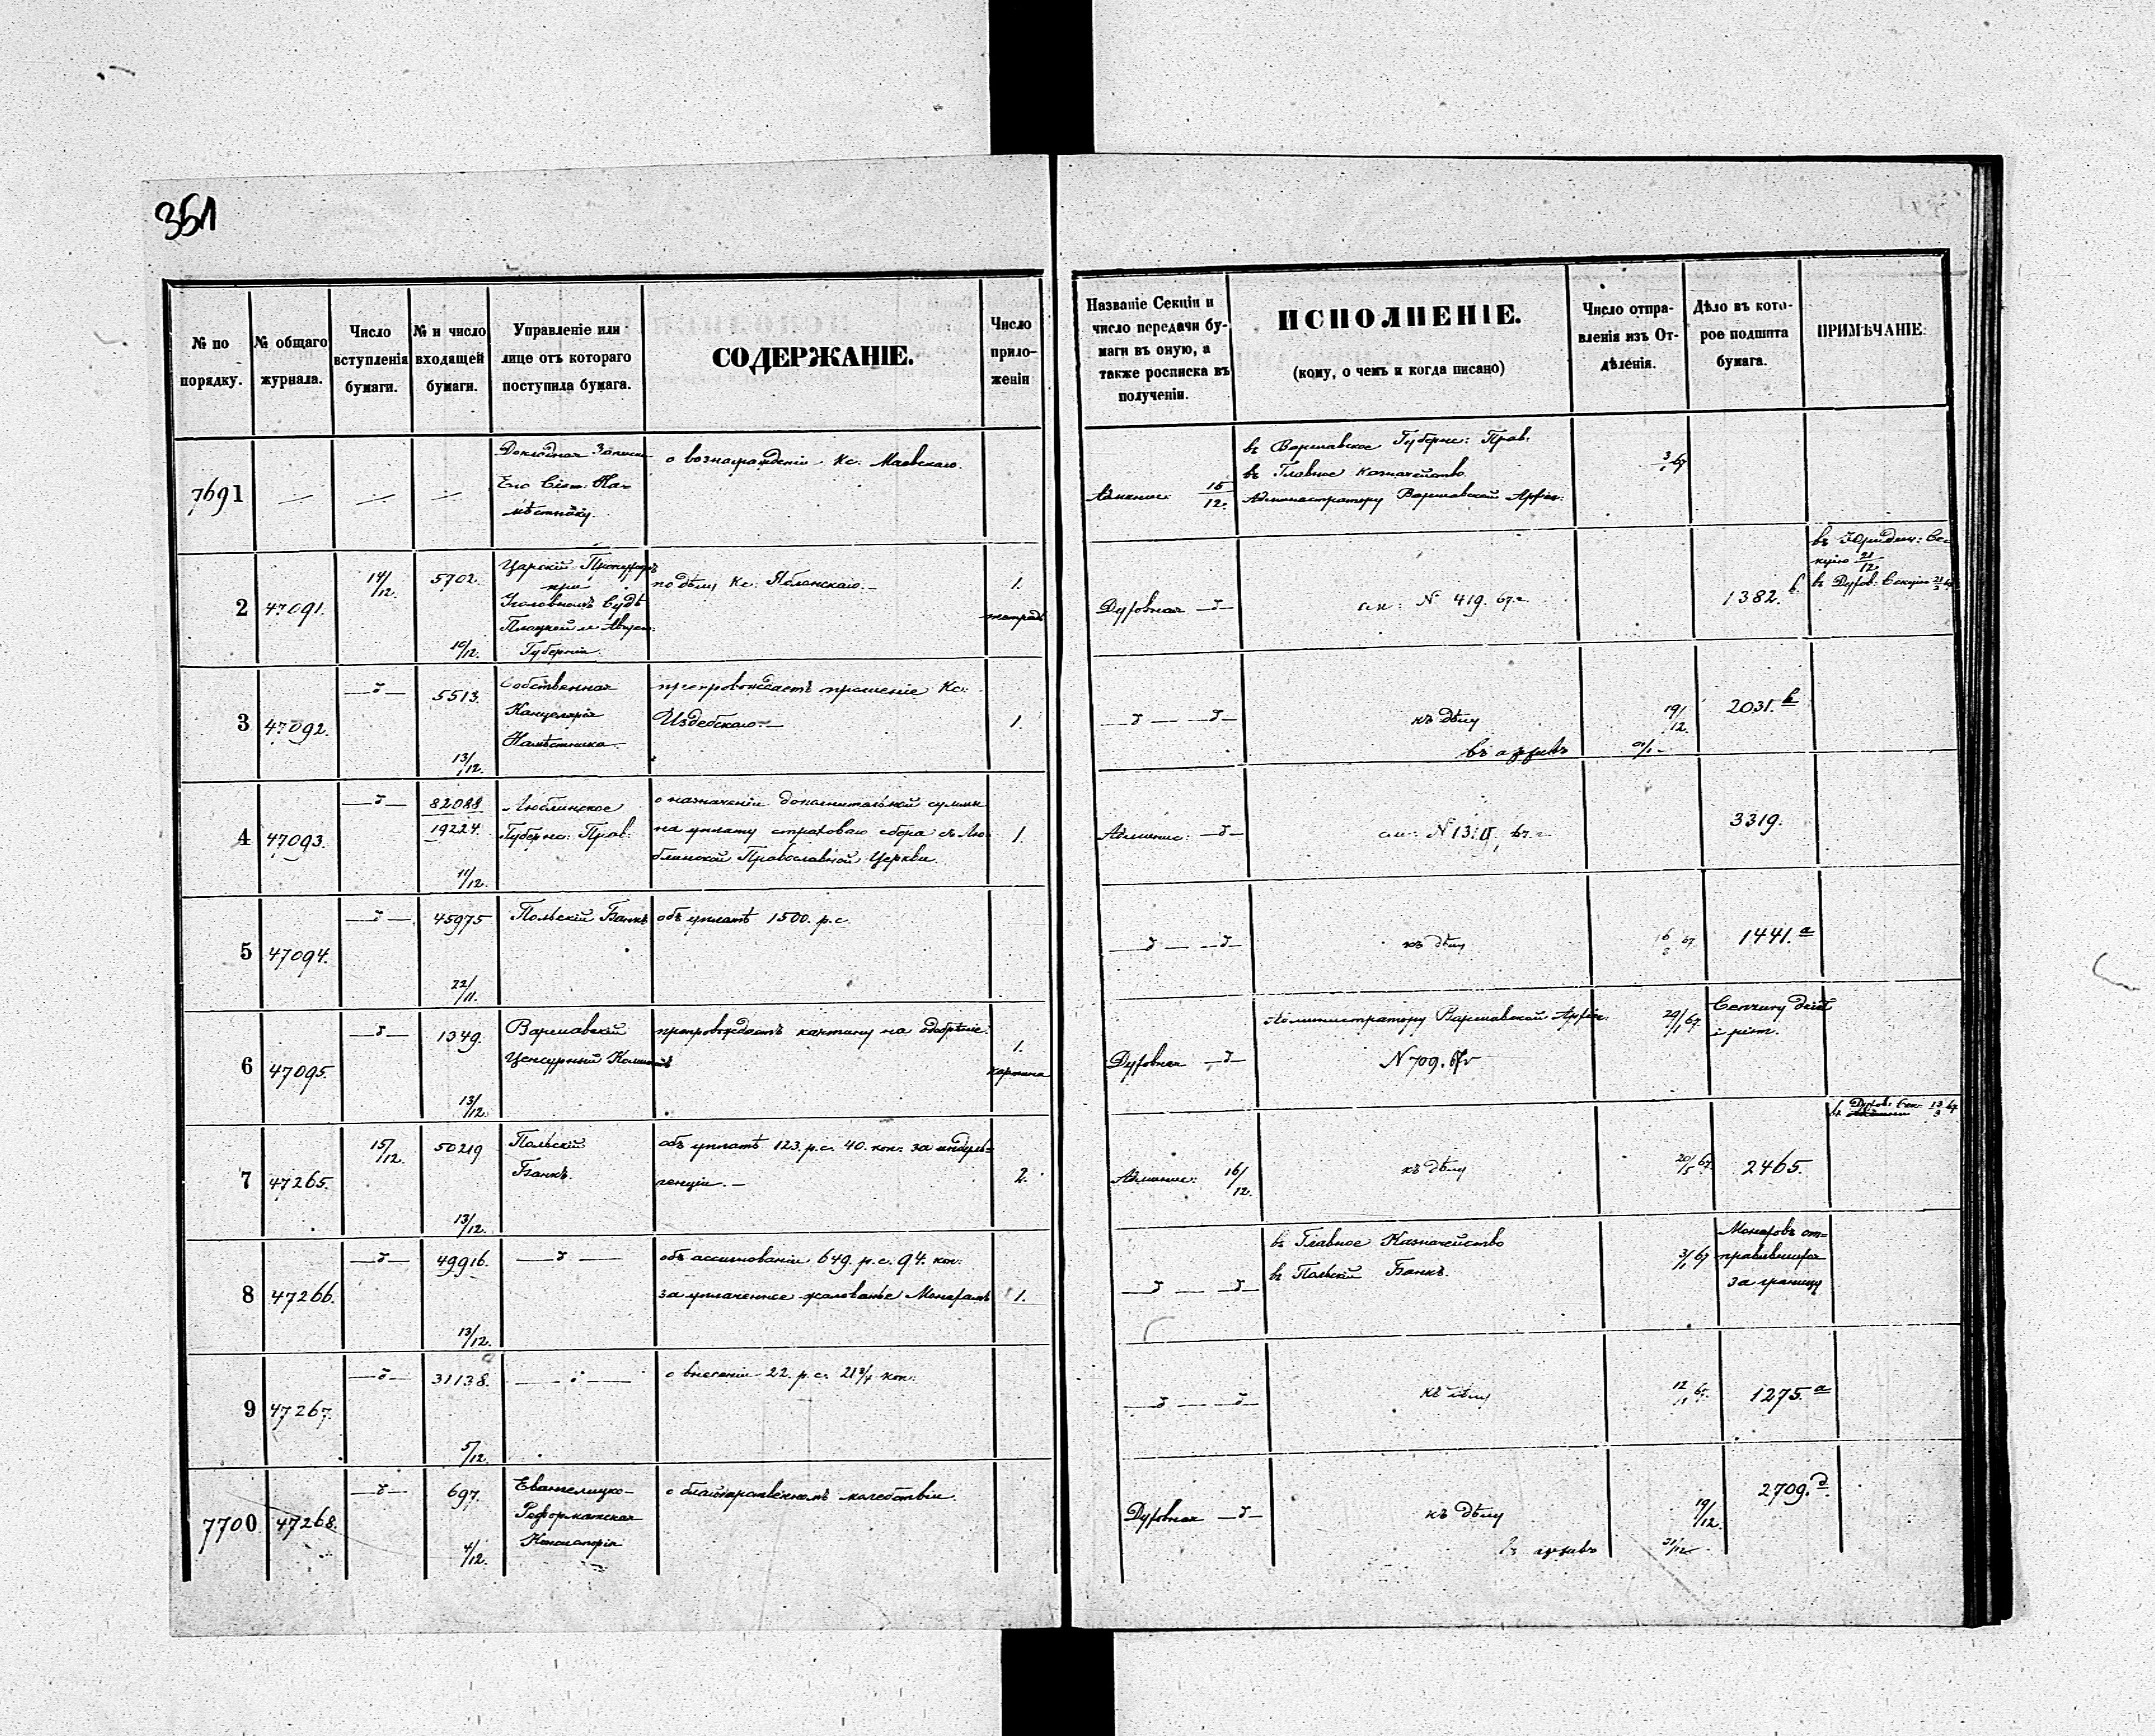 351
№ по порядку.
№ общаго журнала.
Число вступленія бумаги.
№ и число входящей бумаги.
Управленіе или лице отъ котораго поступила бумага.
СОДЕРЖАНІЕ.
Число прило-
женій
Названіе Секціи и
число передачи бу-
маги въ оную, а
также росписка въ
полученіи.
ИСПОЛНЕНІЕ.
(кому, о чемъ и когда писано)
Число отпра-
вленія изъ От-
дѣленія.
Дѣло въ кото-
рое подшита
бумага.
ПРИМѢЧАНІЕ.
7691
Докладная Записка
Его Сіят. На-
мѣстнику.
о вознагражденіи Кс. Маевскаго.
15/12.
въ Варшавское Губернс: Прав:
въ Главное Казначейство
Администратору Варшавской Архіеп:
2
47091.
14/12.
5702.
10/12.
Царскій Прокуроръ
при
Уголовномъ Судѣ
Плоцкой и Август:
Губерніи.
по дѣлу Кс: Яблонскаго.
1.
тетрадь
Духовная
см: № 419. 67 г.
1382.
въ Юридич: Се-
кцію 21/12.
въ Духов: Секцію
3
47092.
5513.
13/12.
Собственная
Канцелярія
Намѣстника
препровождаетъ прошеніе Кс:
Издебскаго.
1.
къ дѣлу
въ архивъ
19/12.
2031. b
4
47093.
82088
19224.
11/12.
Люблинское
Губернс: Прав:
о назначеніи дополнительной суммы
на уплату страховаго сбора съ Лю-
блинской Православной Церкви.
1.
Админис:
3319.
5
47094.
45975
22/11.
Польскій Банкъ
объ уплатѣ 1500. р. с.
къ дѣлу
1441. a
6
47095.
1349.
13/12.
Варшавскій
Цензурный Комитетъ
препровождаетъ картину на одобреніе.
1.
картина
Духовная
Администратору Варшавской Архіеп:
N 709.
29/1 67.
Cenzury dzieł
i pism.
7
47265.
15/12.
50219
13/12.
Польскій
Банкъ.
объ уплатѣ 123. р. с. 40. коп. за индуль-
генціи.
2.
Админис: 16/12.
къ дѣлу
20/5 67.
2465.
8
47266.
49916.
13/12.
объ ассигнованіи 649. р. с. 94. коп.
за уплаченное жалованье Монахамъ
1.
въ Главное Казначейство
въ Польскій Банкъ.
3/1 67
Монаховъ от-
правившихся
за границу
9
47267.
31138.
5/12.
о внесеніи 22. р. с. 21 3/4 коп.
къ дѣлу
1275. a
7700
47268.
697.
4/12.
Евангелицко-
Реформатская
Консисторія
о благодарственномъ молебствіи.
Духовная
къ дѣлу
въ архивъ
19/12.
31/12
2709.